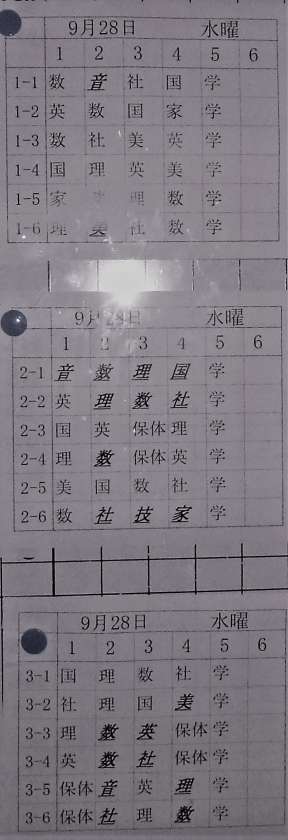 9月28日 水曜
1 2 3 4 5 6
1-1 数 音 社 国 学
1-2 英 数 国 家 学
1-3 数 社 美 英 学
1-4 国 理 英 美 学
1-5 家 理 数 学
1-6 理 美 社 数 学
9月28日 水曜
1 2 3 4 5 6
2-1 音 数 理 国 学
2-2 英 理 数 社 学
2-3 国 英 保体 理 学
2-4 理 数 保体 英 学
2-5 美 国 数 社 学
2-6 数 社 技 家 学
9月28日 水曜
1 2 3 4 5 6
3-1 国 理 数 社 学
3-2 社 理 国 美 学
3-3 理 数 英 保体 学
3-4 英 数 社 保体 学
3-5 保体 音 英 理 学
3-6 保体 社 理 数 学